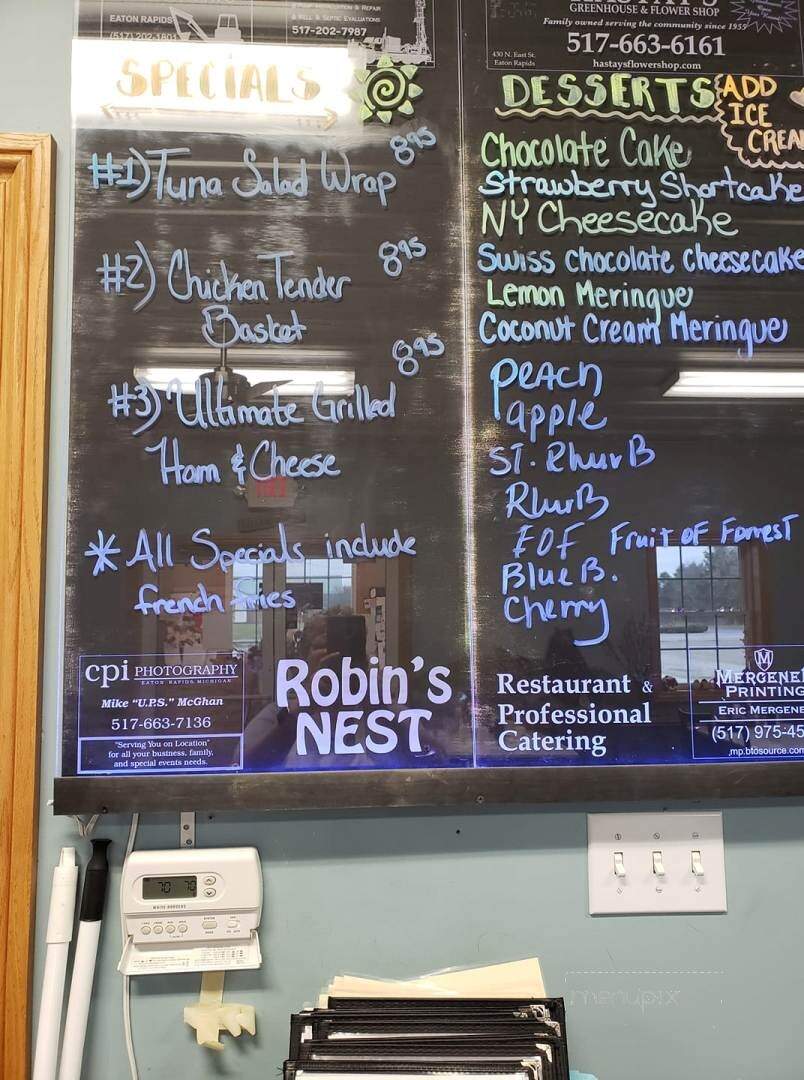 EATON RAPIDS
(517) 202-1801
& WELL & SEPTIC EVALUATIONS
517-202-7987
GREENHOUSE & FLOWER SHOP
Family owned serving the community since 1955
517-663-6161
430 N. East St.
Eaton Rapids
hastaysflowershop.com
SPECIALS
#1) Tuna Salad Wrap 8.95
#2) Chicken Tender 8.95
Basket
#3) Ultimate Grilled 8.95
Ham & Cheese
* All Specials include
french fries
DESSERTS
ADD
ICE
CREA
Chocolate Cake
Strawberry Shortcake
NY Cheesecake
Swiss chocolate cheesecake
Lemon Meringue
Coconut Cream Meringue
PEACH
apple
ST. RhurB
RhurB
FOF Fruit OF Forrest
Blue B.
Cherry
cpi PHOTOGRAPHY
EATON RAPIDS, MICHIGAN
Mike "U.P.S." McGhan
517-663-7136
"Serving You on Location"
for all your business, family,
and special events needs.
Robin's
NEST
Restaurant &
Professional
Catering
M
MERGENE
PRINTING
ERIC MERGENE
(517) 975-45
mp.btosource.com
70 70
WHITE-RODGERS
menupix